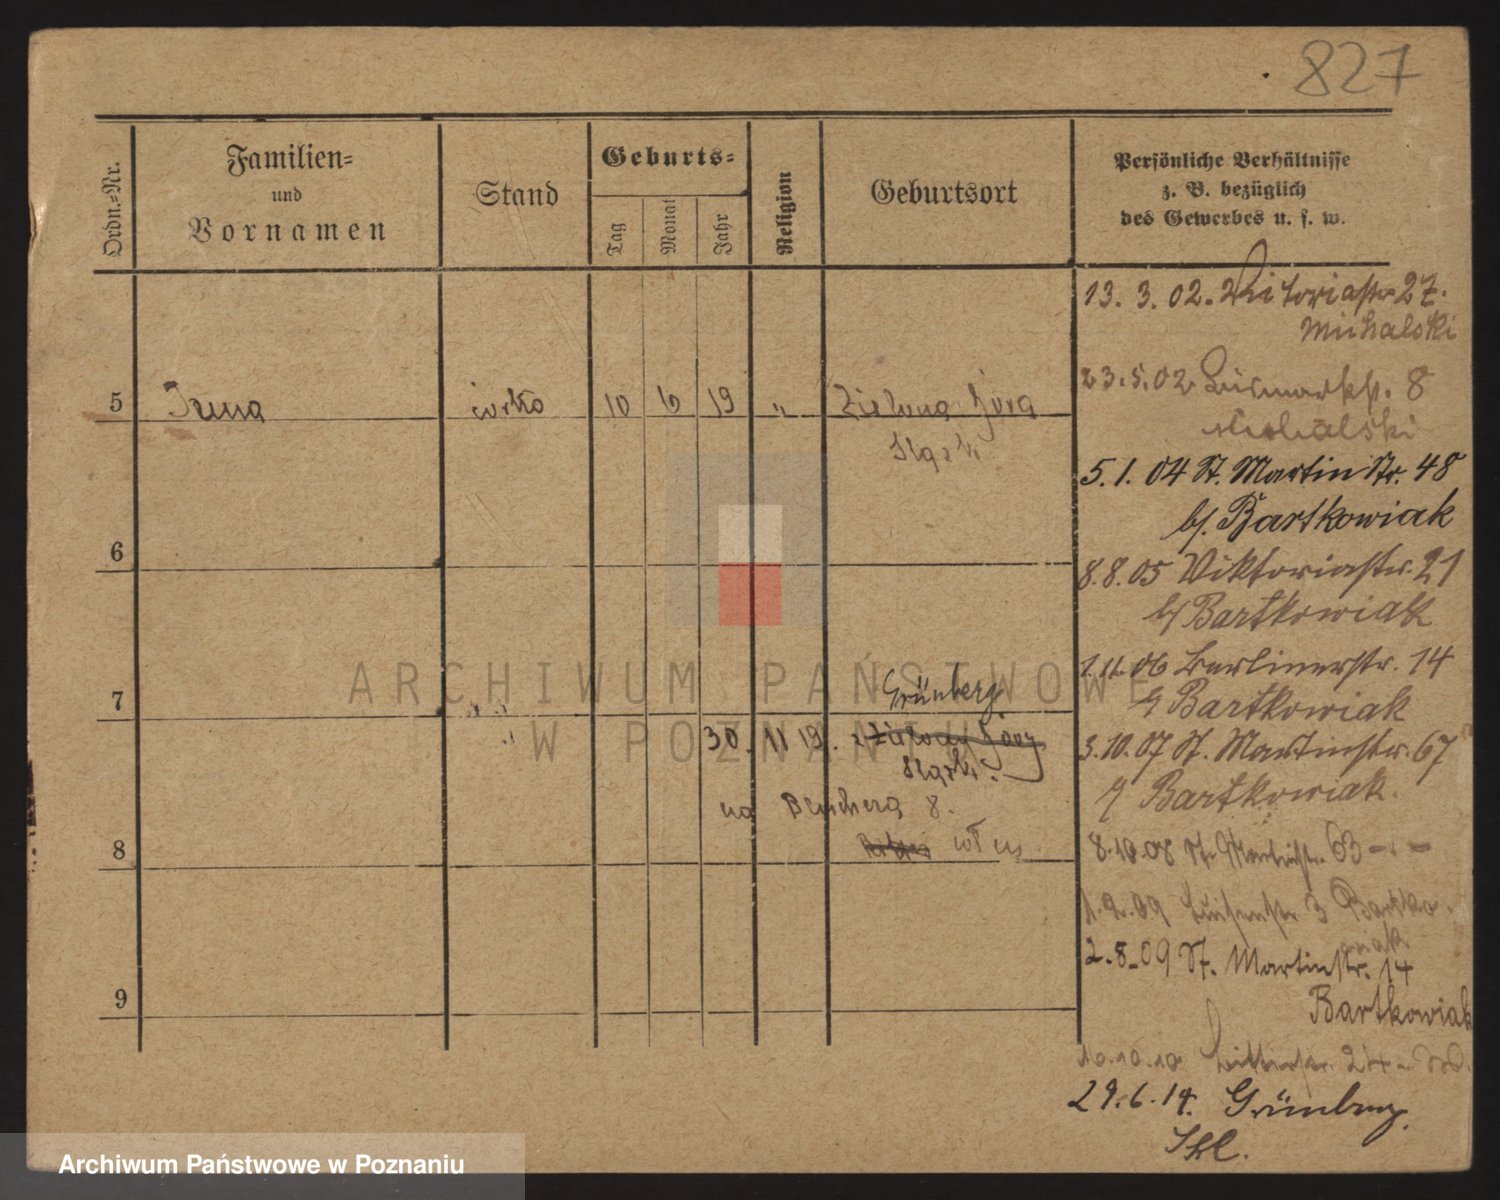 827
Ordn.-Nr.
Familien-
und
Vornamen
Stand
Geburts-
Tag
Monat
Jahr
Religion
Geburtsort
Persönliche Verhältnisse
z. B. bezüglich
des Gewerbes u. s. w.
13. 3. 02. Viktoriastr. 27.
Michalski
23.5.02 Bismarckstr. 8
Michalski
5 Irena córka 10 6 19 " Zielona Góra
Śląsk
5.1.04 St. Martin Str. 48
b/. Bartkowiak
6
8.8.05 Viktoriastr. 21
b/ Bartkowiak
1.11.06 Berlinerstr. 14
b/ Bartkowiak
7
Grünberg
30. 11 19. z Zielonej Góry
Śląsk.
3.10.07 St. Martinstr. 67
b/ Bartkowiak.
na Blüchera 8.
8
8.10.08 St. Martinstr. 63 - " -
1.2.09 Luisenstr 3 Bartko-
wiak
2.8.09 St. Martinstr. 14
Bartkowiak
9
10.10.10 Ritterstr. 24
29.6.14. Grünberg.
Schl.
ARCHIWUM PAŃSTWOWE
W POZNANIU
Archiwum Państwowe w Poznaniu